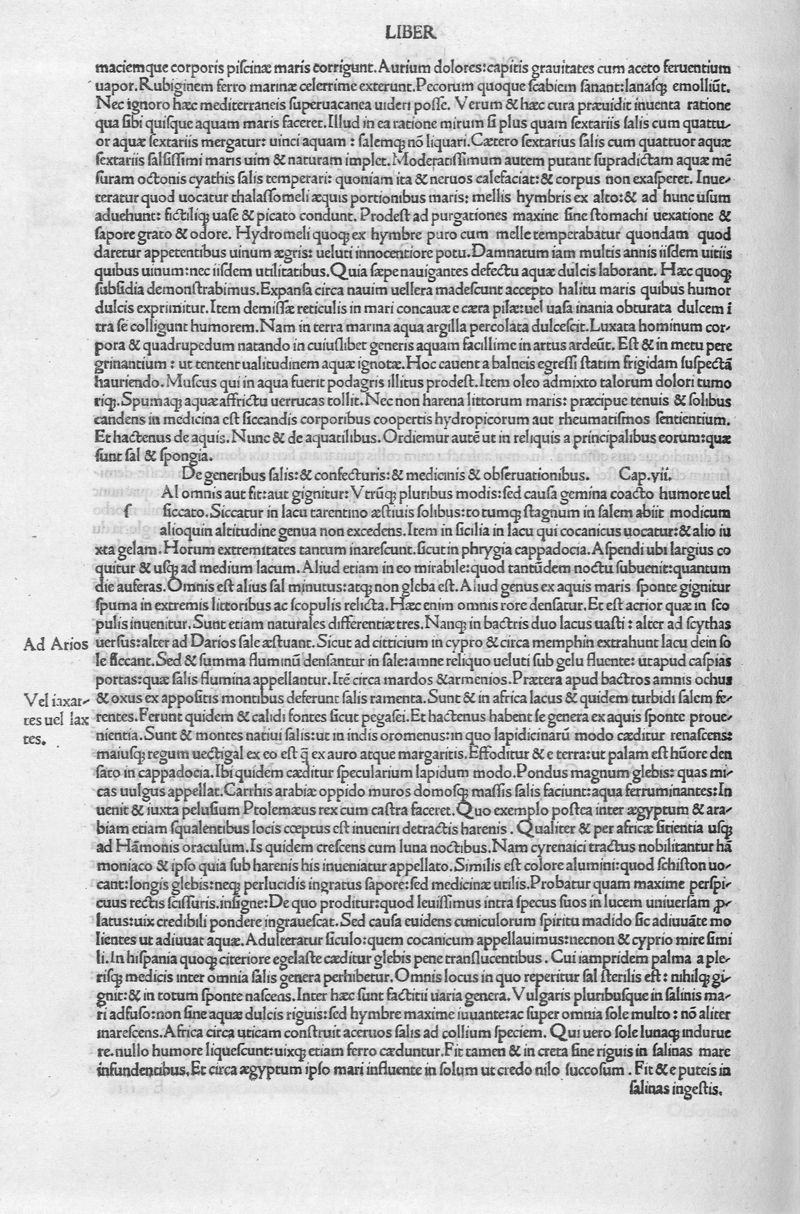 LIBER
maciemque corporis piſcinæ maris corrigunt. Aurium dolores: capitis grauitates cum aceto feruentium
uapor. Rubiginem ferro marinæ celerrime exterunt. Pecorum quoque ſcabiem ſanant: lanaſqꝫ emolliūt.
Nec ignoro hæc mediterraneis ſuperuacanea uideri poſſe. Verum & hæc cura præuidit inuenta ratione
qua ſibi quiſque aquam maris faceret. Illud in ea ratione mirum ſi plus quam ſextariis ſalis cum quattu-
or aquæ ſextariis mergatur: uinci aquam: ſalemqꝫ nō liquari. Cætero ſextarius ſalis cum quattuor aquæ
ſextariis ſalſiſſimi maris uim & naturam implet. Moderatiſſimum autem putant ſupradictam aquæ mē
ſuram octonis cyathis ſalis temperari: quoniam ita & neruos calefaciat: & corpus non exaſperet. Inue-
teratur quod uocatur thalaſſomeli æquis portionibus maris: mellis hymbris ex alto: & ad hunc uſum
aduehunt: fictiliqꝫ uaſe & picato condunt. Prodeſt ad purgationes maxime ſine ſtomachi uexatione &
ſapore grato & odore. Hydromeli quoqꝫ ex hymbre puro cum melle temperabatur quondam quod
daretur appetentibus uinum ægris: ueluti innocentiore potu. Damnatum iam multis annis iiſdem uitiis
quibus uinum: nec iiſdem utilitatibus. Quia ſæpe nauigantes defectu aquæ dulcis laborant. Hæc quoqꝫ
ſubſidia demonſtrabimus. Expanſa circa nauim uellera madeſcunt accepto halitu maris quibus humor
dulcis exprimitur. Item demiſſæ reticulis in mari concauæ e cæra pilæ: uel uaſa inania obturata dulcem ī
tra ſe colligunt humorem. Nam in terra marina aqua argilla percolata dulceſcit. Luxata hominum cor-
pora & quadrupedum natando in cuiuſlibet generis aquam facillime in artus ardeūt. Eſt & in metu pere
grinantium: ut tentent ualitudinem aquæ ignotæ. Hoc cauent a balneis egreſſi ſtatim frigidam ſuſpectā
hauriendo. Muſcus qui in aqua fuerit podagris illitus prodeſt. Item oleo admixto talorum dolori tumo
riqꝫ. Spumaqꝫ aquæ affrictu uerrucas tollit. Nec non harena littorum maris: præcipue tenuis & ſolibus
candens in medicina eſt ſiccandis corporibus coopertis hydropicorum aut rheumatiſmos ſentientium.
Et hactenus de aquis. Nunc & de aquatilibus. Ordiemur autē ut in reliquis a principalibus eorum: quæ
ſunt ſal & ſpongia.
De generibus ſalis: & confecturis: & medicinis & obſeruationibus. Cap. vii.
ſ Al omnis aut fit: aut gignitur: Vtrūqꝫ pluribus modis: ſed cauſa gemina coacto humore uel
ſiccato. Siccatur in lacu tarentino æſtiuis ſolibus: totumqꝫ ſtagnum in ſalem abiit modicum
alioquin altitudine genua non excedens. Item in ſicilia in lacu qui cocanicus uocatur: & alio iu
xta gelam. Horum extremitates tantum inareſcunt. ſicut in phrygia cappadocia. Aſpendi ubi largius co
quitur & uſqꝫ ad medium lacum. Aliud etiam in eo mirabile: quod tantūdem noctu ſubuenit: quantum
die auferas. Omnis eſt alius ſal minutus: atqꝫ non gleba eſt. Aliud genus ex aquis maris ſponte gignitur
ſpuma in extremis littoribus ac ſcopulis relicta. Hæc enim omnis rore denſatur. Et eſt acrior quæ in ſco
pulis inuenitur. Sunt etiam naturales differentiæ tres. Nanqꝫ in bactris duo lacus uaſti: alter ad ſcythas
Ad Arios uerſus: alter ad Darios ſale æſtuant. Sicut ad citticium in cypro & circa memphin extrahunt lacu dein ſo
le ſiccant. Sed & ſumma fluminū denſantur in ſale: amne reliquo ueluti ſub gelu fluente: ut apud caſpias
portas: quæ ſalis flumina appellantur. Itē circa mardos & armenios. Prætera apud bactros amnis ochus
Vel iaxar- & oxus ex appoſitis montibus deferunt ſalis ramenta. Sunt & in africa lacus & quidem turbidi ſalem fe-
tes uel iax rentes. Ferunt quidem & calidi fontes ſicut pegaſei. Et hactenus habent ſe genera ex aquis ſponte proue-
tes. nientia. Sunt & montes natiui ſalis: ut in indis oromenus: in quo lapidicinarū modo cæditur renaſcens:
maiuſqꝫ regum uectigal ex eo eſt q̄ ex auro atque margaritis. Effoditur & e terra: ut palam eſt hūore den
ſato in cappadocia. Ibi quidem cæditur ſpecularium lapidum modo. Pondus magnum glebis: quas mi-
cas uulgus appellat. Carrhis arabiæ oppido muros domoſqꝫ maſſis ſalis faciunt: aqua ferruminantes: In
uenit & iuxta peluſium Ptolemæus rex cum caſtra faceret. Quo exemplo poſtea inter ægyptum & ara-
biam etiam ſqualentibus locis cœptus eſt inueniri detractis harenis. Qualiter & per africæ ſitientia uſqꝫ
ad Hāmonis oraculum. Is quidem creſcens cum luna noctibus. Nam cyrenaici tractus nobilitantur hā
moniaco & ipſo quia ſub harenis his inueniatur appellato. Similis eſt colore alumini: quod ſchiſton uo-
cant: longis glebis: neqꝫ perlucidis ingratus ſapore: ſed medicinæ utilis. Probatur quam maxime perſpi-
cuus rectis ſciſſuris. inſigne: De quo proditur: quod leuiſſimus intra ſpecus ſuos in lucem uniuerſam ꝓ-
latus: uix credibili pondere ingraueſcat. Sed cauſa euidens cuniculorum ſpiritu madido ſic adiuuāte mo
lientes ut adiuuat aquæ. Adulteratur ſiculo: quem cocanicum appellauimus: necnon & cyprio mire ſimi
li. In hiſpania quoqꝫ citeriore egelaſte cæditur glebis pene tranſlucentibus. Cui iampridem palma a ple-
riſqꝫ medicis inter omnia ſalis genera perhibetur. Omnis locus in quo reperitur ſal ſterilis eſt: nihilqꝫ gi-
gnit: & in totum ſponte naſcens. Inter hæc ſunt factitii uaria genera. Vulgaris pluribuſque in ſalinis ma-
ri adfuſo: non ſine aquæ dulcis riguis: ſed hymbre maxime iuuante: ac ſuper omnia ſole multo: nō aliter
inareſcens. Africa circa uticam conſtruit aceruos ſalis ad collium ſpeciem. Qui uero ſole lunaqꝫ indurue
re. nullo humore liqueſcunt: uixqꝫ etiam ferro cæduntur. Fit tamen & in creta ſine riguis in ſalinas mare
infundentibus. Et circa ægyptum ipſo mari influente in ſolum ut credo nilo ſuccoſum. Fit & e puteis in
ſalinas ingeſtis.